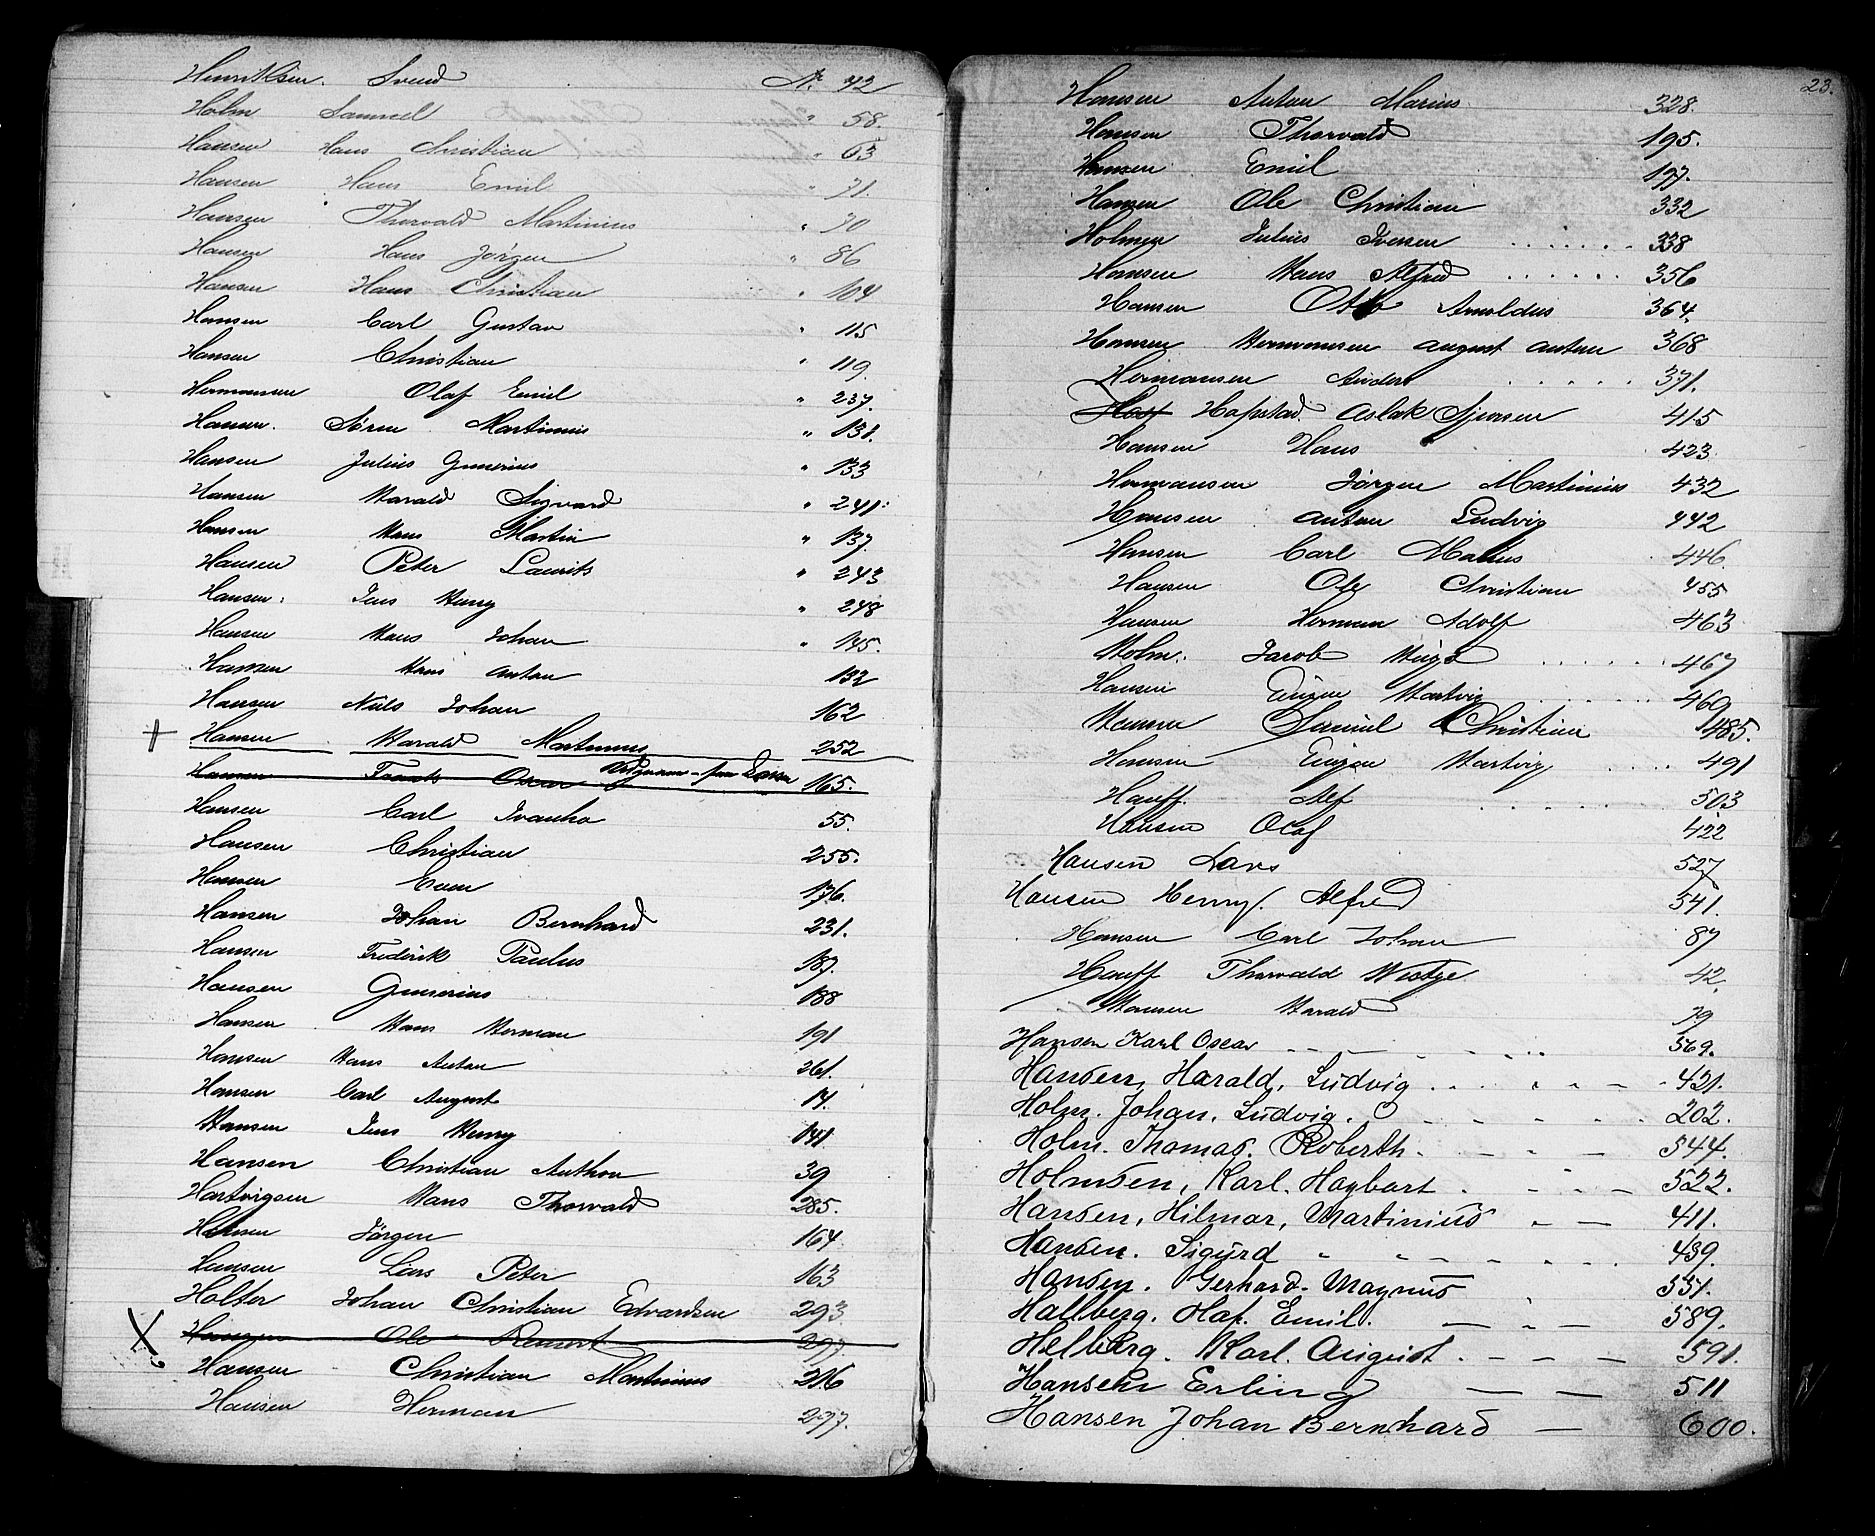 Henriksen. Svend Nr. 42
Holm Samuel " 58.
Hansen Hans Christian " 63
Hansen Hans Emil " 71.
Hansen Thorvald Martinius " 70
Hansen Hans Jørgen " 86
Hansen Hans Christian " 104
Hansen Carl Gustav " 115
Hansen Christian " 119.
Hermansen Olaf Emil " 237.
Hansen. Søren Martinius " 131.
Hansen Julius Gunerius " 133
Hansen Harald Sigvard " 241.
Hansen Hans Martin " 137.
Hansen Peter Laurits " 243
Hansen. Jens Henry " 248
Hansen Hans Johan " 145.
Hansen Hans Anton 132
Hansen Nils Johan 162
+ Hansen Harald Martinius 252
Hansen Oscar 165.
Hansen Carl Ivanho 55.
Hansen Christian 255.
Hansen 176.
Hansen Johan Bernhard 231.
Hansen Frederik Paulus 187.
Hansen Gunerius 188
Hansen Hans Herman 191
Hansen Hans Anton 261.
Hansen Carl August 14.
Hansen Jens Henry 141
Hansen Christian Anthon 39
Hartvigsen Hans Thorvald 285.
Hansen Jörgen 164
Hansen Lars Peter 163
Holter Johan Christian Edvardsen 293.
X Ole 297
Hansen Christian Martinius 216
Hansen Herman 277.
23.
Hansen Anton Marius 328.
Hansen Thorvald 195.
Hansen Emil 197.
Hansen Ole Christian 332
Holmen Julius Iversen 338
Hansen Hans Alfred 356
Hansen Otto Arnoldus 364.
Hansen Hermansen August Anton 368
Hermansen Anders 371.
Hafstad. Aslak 415
Hansen Hans 423
Hermansen Jørgen Martinius 432
Hansen Anton Ludvig 442
Hansen Carl Marius 446.
Hansen Ole Christian 455
Hansen Herman Adolf 463
Holm. Jacob Hugo 467
Hansen Eugen Hartvig 469
Hansen Samuel Christian 485.
Hansen Eugen Hartvig 491
Hauff. Alf 503
Hansen Olaf 422
Hansen Lars 527
Hansen Henry. Alfred 541.
Hansen Carl Johan 87
Hauff Thorvald Westye 42.
Hansen Harald 79
Hansen Karl Oscar 569.
Hansen, Harald, Ludvig 421.
Holm. Johan, Ludvig. O 202.
Holm. Thomas. Roberth. 544.
Holmsen, Karl. Hagbart 522.
Hansen, Hilmar, Martinius 411.
Hansen. Sigurd 439.
Hansen. Gerhard. Magnus 551.
Hallberg. Olaf. Emil. 589.
Helberg. Karl. August. 591.
Hansen Erling 511
Hansen Johan Bernhard 600.